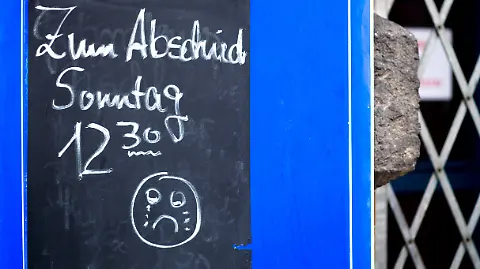 Zum Abschied
Sonntag
12 30